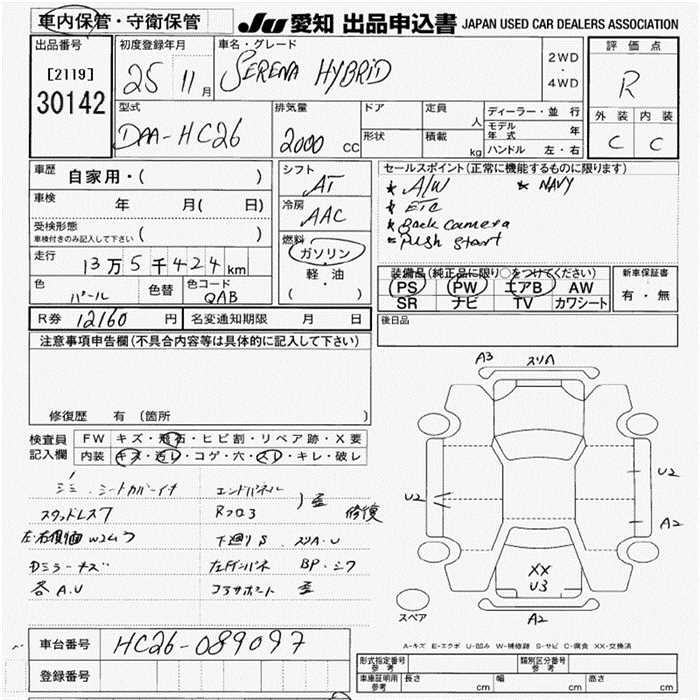 車内保管・守衛保管 JU 愛知 出品申込書 JAPAN USED CAR DEALERS ASSOCIATION
出品番号 初度登録年月 車名・グレード 評価点
[2119] 25 11月 SERENA HYBRID 2WD・4WD R
30142
型式 排気量 ドア 定員 人 ディーラー・並行 外装 内装
DAA-HC26 2000 cc 形状 積載 kg モデル年式 年 C C
ハンドル 左・右
車歴 自家用・( ) シフト セールスポイント(正常に機能するものに限ります)
AT ★ A/W ★ NAVY
車検 年 月( 日) 冷房 ★ ETC
受検形態 AAC ★ Back camera
車検付きのみ記入して下さい ( ) ★ Push Start
走行 燃料
13万5千424km ガソリン 装備品(純正品に限り○をつけてください) 新車保証書
色 色替 色コード 軽・油 PS PW エアB AW 有・無
パール QAB ( ) SR ナビ TV カワシート
R券 12160 円 名変通知期限 月 日 後日品
注意事項申告欄(不具合内容等は具体的に記入して下さい)
修復歴 有 (箇所
検査員 FW キズ・飛石・ヒビ割・リペア跡・X要
記入欄 内装 キズ・汚レ・コゲ・穴・スレ・キレ・破レ
シートカバーイナ エンドパネル
スタッドレス7 Rフロア 歪 修復
下廻りS スリA.U
Dミラーキズ BP.シワ
各A.U コアサポート 歪
A3 スリA
U2
U2
A2
XX
U3
A2
スペア
車台番号 HC26-089097
A-キズ E-エクボ U-凹み W-補修跡 S-サビ C-腐食 XX-交換済
登録番号 形式指定番号 参考 類別区分番号 参考
車庫証明用 参考 長さ cm 幅 cm 高さ cm